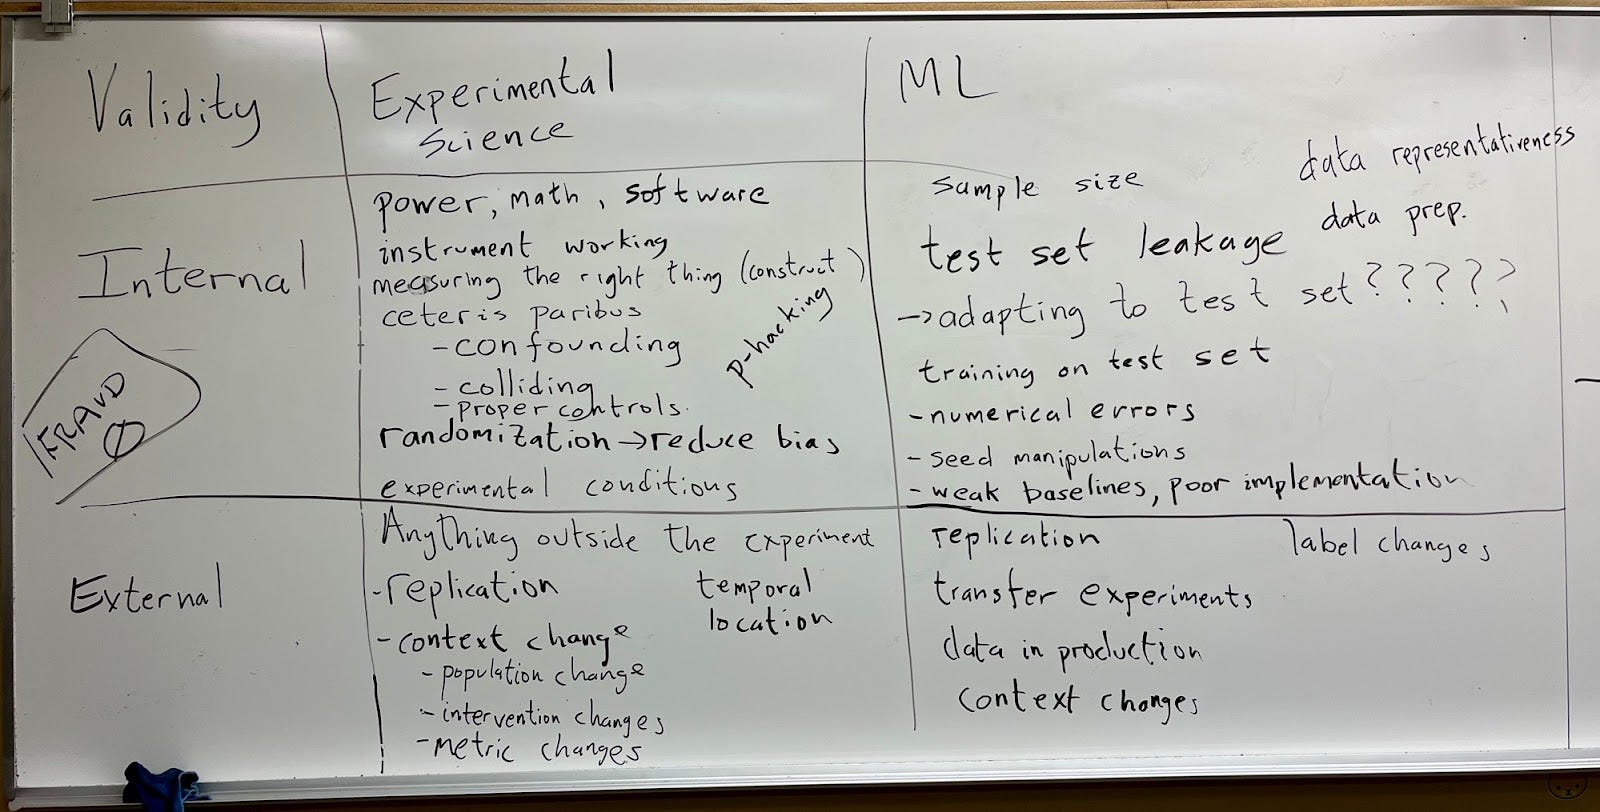 Validity
Experimental
Science
ML
Internal
FRAUD
power, math, software
instrument working
measuring the right thing (construct)
ceteris paribus
- confounding
- colliding
- proper controls.
p-hacking
randomization → reduce bias
experimental conditions
sample size
data representativeness
data prep.
test set leakage
→ adapting to test set?????
training on test set
- numerical errors
- seed manipulations
- weak baselines, poor implementation
External
Anything outside the experiment
- replication
temporal
location
- context change
- population change
- intervention changes
- metric changes
replication
label changes
transfer experiments
data in production
context changes